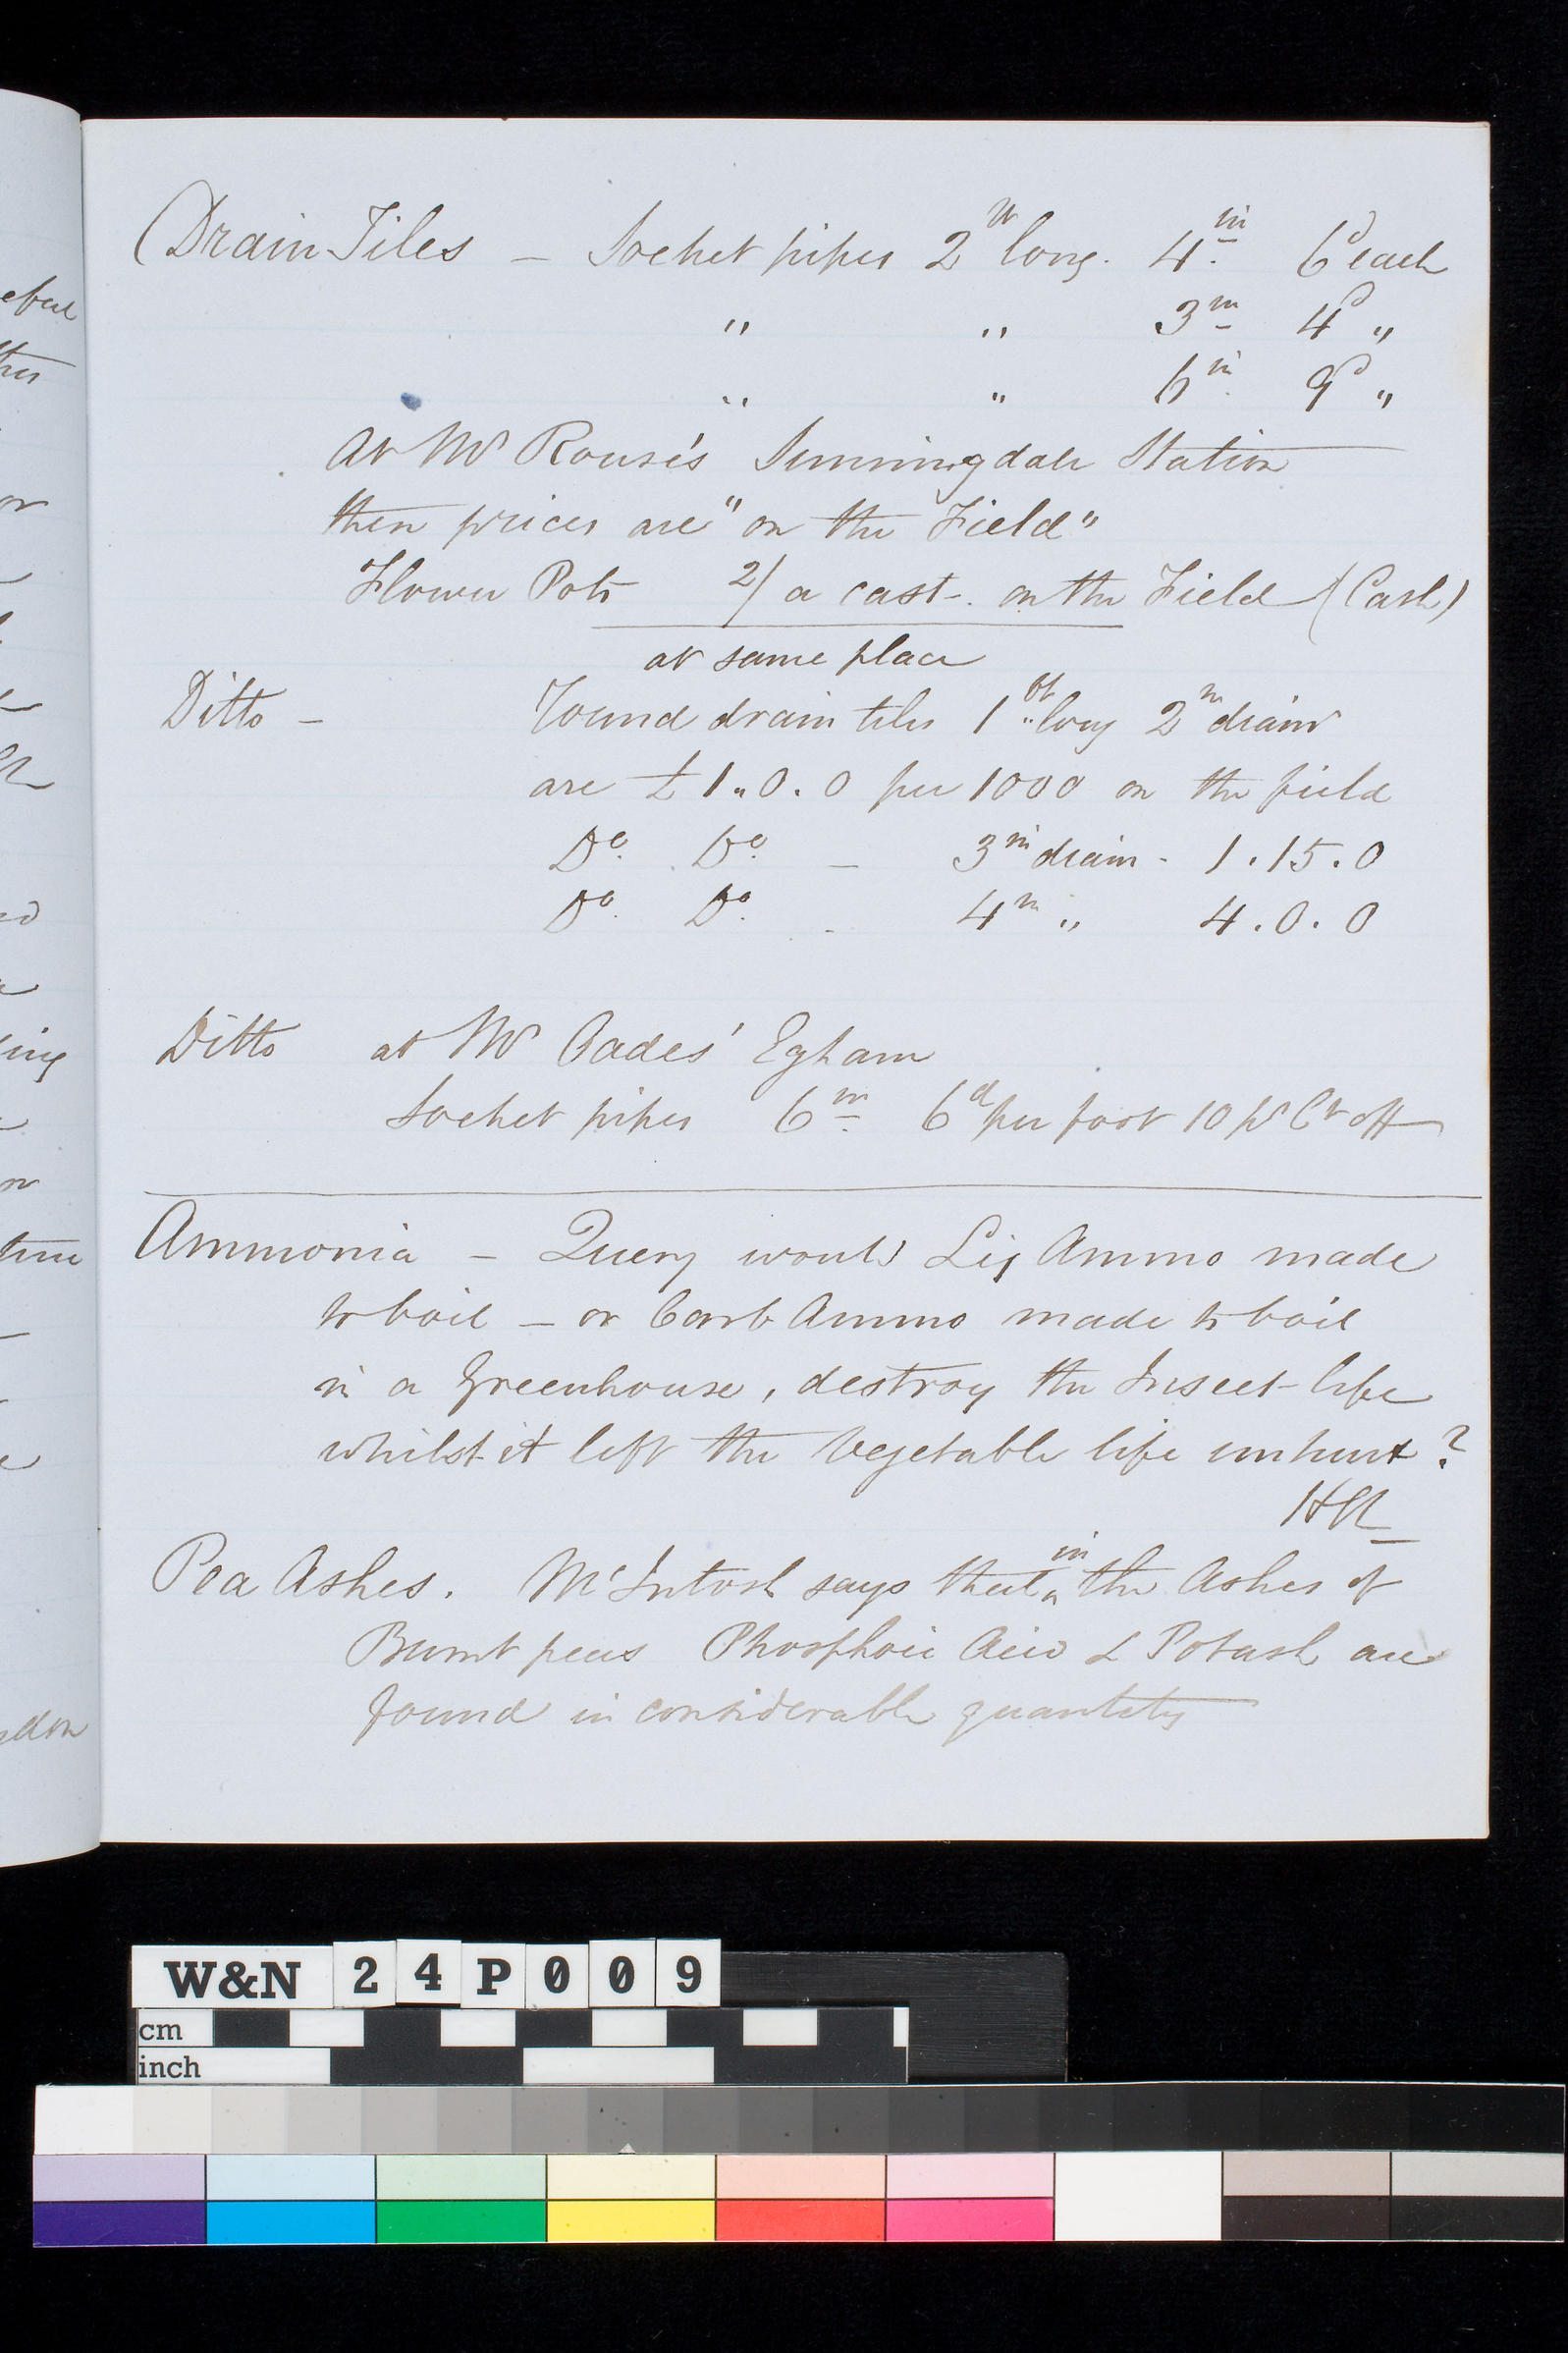 (Drain Tiles — Socket pipes 2ft long. 4in 6d each
" " 3in 4d "
" " 6in 9d "
At Mr Rouse's Sunningdale Station
these prices are "on the Field"
Flower Pots 2/ a cast - on the Field (Cash)
at same place
Ditto — Round drain tiles 1ft long 2in drain
are £1.0.0 per 1000 on the field
Do. Do. — 3in drain - 1.15.0
Do. Do. - 4in " 4.0.0
Ditto at Mr Eades' Egham
Socket pipes 6in 6d per foot 10 pr Ct off
Ammonia — Query would Liq Ammo made
to boil — or Carb Ammo made to boil
in a Greenhouse, destroy the Insect-life
whilst it left the Vegetable life unhurt?
HCN
Pea Ashes. McIntosh says that in the Ashes of
Burnt peas Phosphoric Acid & Potash are
found in considerable quantity
ing
don
W&N 24P009
cm
inch